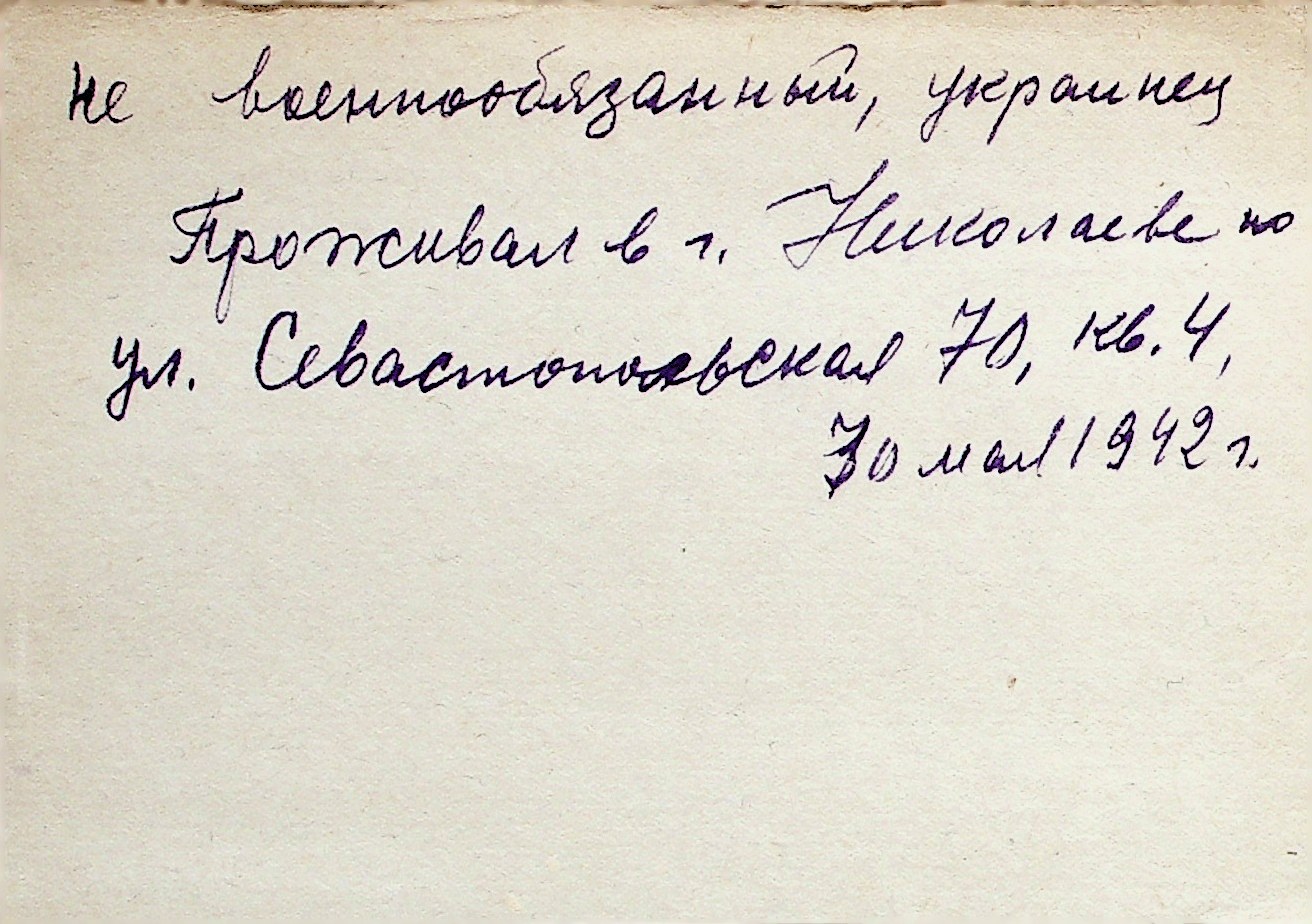 не военнообязанный, украинец
Проживал в г. Николаеве по
ул. Севастопольская 70, кв. 4,
30 мая 1942 г.